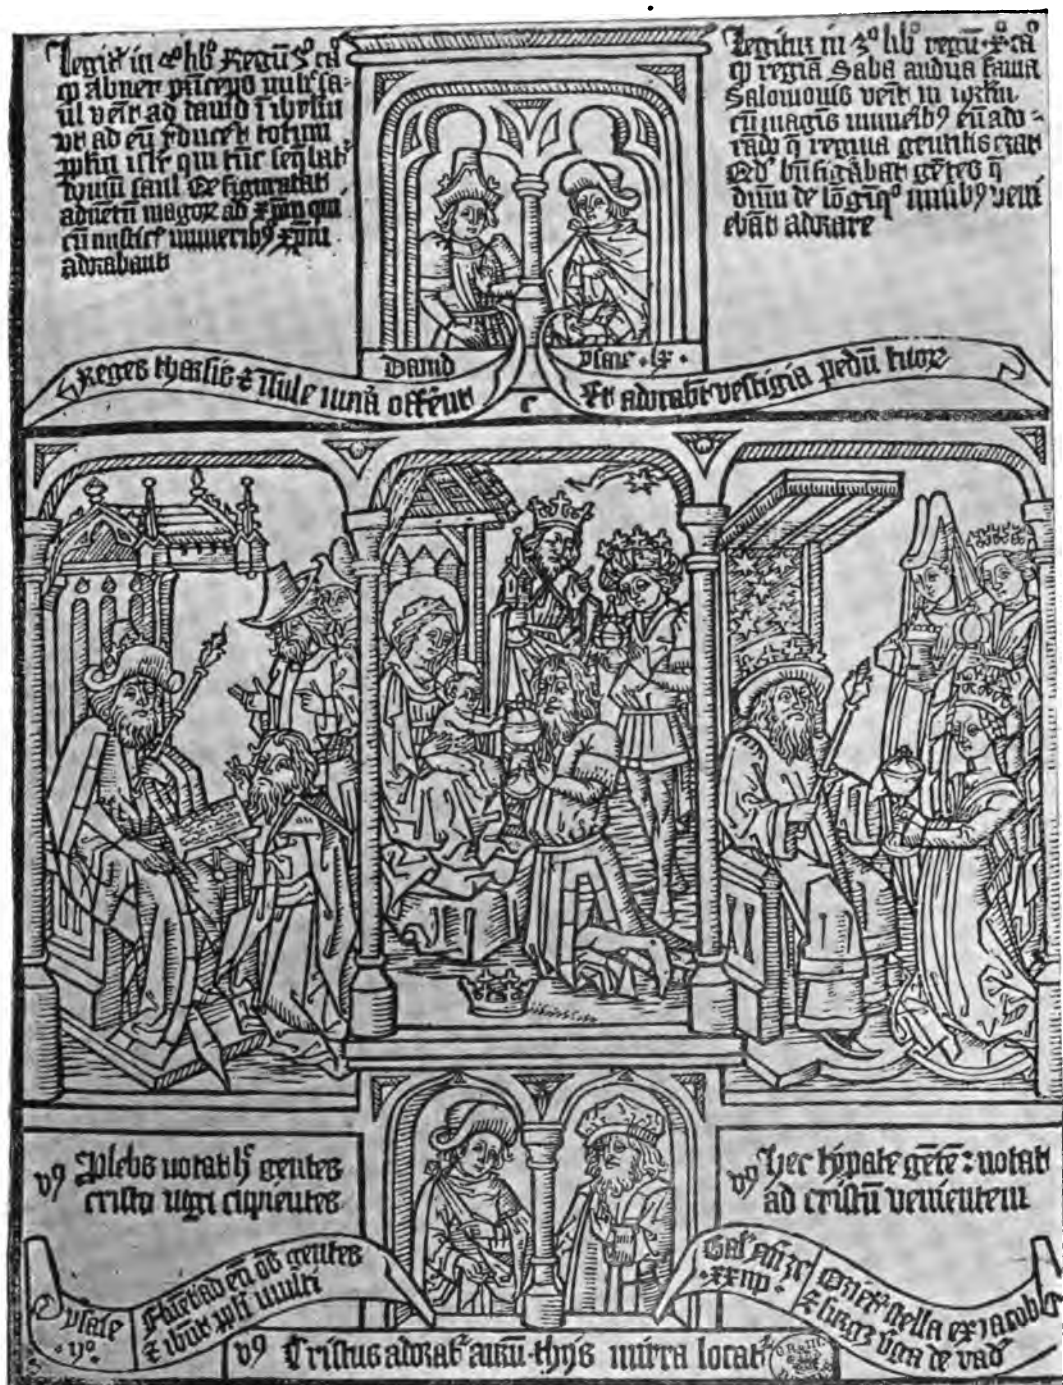 Legit in 2º libº Regū 3º caº
q abner p̄nceps milit̄ sa-
ul venit ad dauid ī iherlm̄
vt ad eū r̄duceret totum
pplm̄ isrl̄ qui tūc seq̄bat̄
domū saul Qd̄ figurabat
aduētū magoꝝ ad xp̄m qui
cū misticꝭ munerib9 xp̄m
adorabant
Legitur in 3º libº regū xº caº
q regīa Saba audita fama
Salomonis venit in ihrlm̄
cū magnis munerib9 eū ado-
rādo q̄ regina gentilis erat
Qd̄ bn̄ figābat gētes q̄
dm̄m de lōgīq̄º munib9 veni
ebāt adorare
Dauid
ysaie · lx ·
Reges tharsis ⁊ īsule mun̄a offerūt
Et adorabūt vestigia pedū tuoꝝ
c
v9 Plebs notat hꝭ gentes
cristo iūgi cupientes
v9 Hec typate gētē: notat
ad cristū venientem
ysaie
· ijº ·
Fluēt ad eū oēs gentes
⁊ ibūt ppl̄i multi
·xxiiij·
Oriet̄ stella ex iacob
⁊ surget v̄ga de
v9 Cristus adorat̄ aurū · thus mirra locat̄